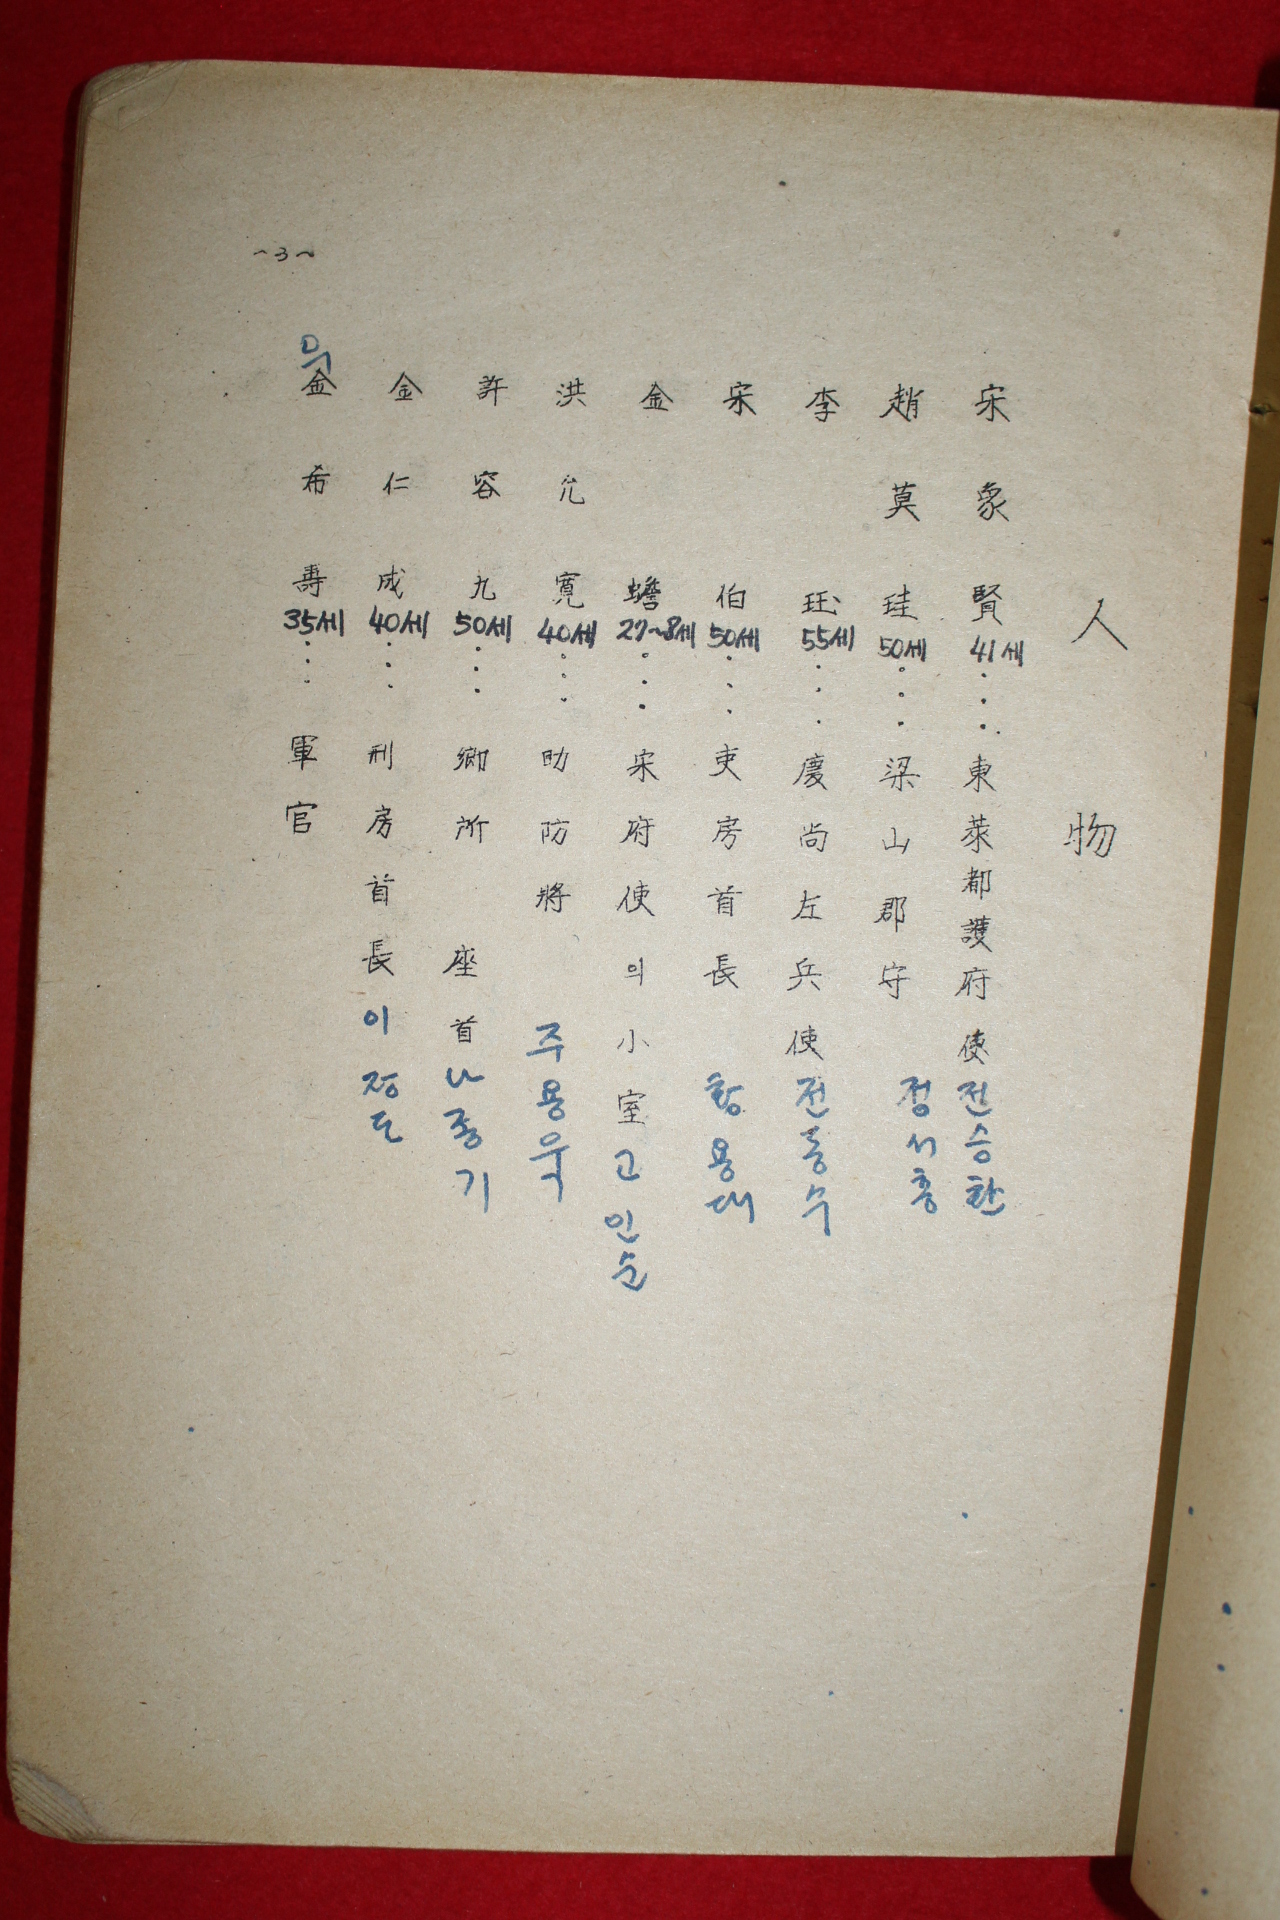 人物
宋象賢 41세 ... 東萊都護府使 전승환
趙莫珪 50세 ... 梁山郡守 정서홍
李珏 55세 ... 慶尙左兵使 전종수
宋伯 50세 ... 吏房首長 황용대
金蟾 27~8세 ... 宋府使의小室 고인순
洪允寬 40세 ... 助防將 주용욱
許容九 50세 ... 鄕所 座首 나종기
金仁成 40세 ... 刑房首長 이정도
金希壽 35세 ... 軍官
~3~